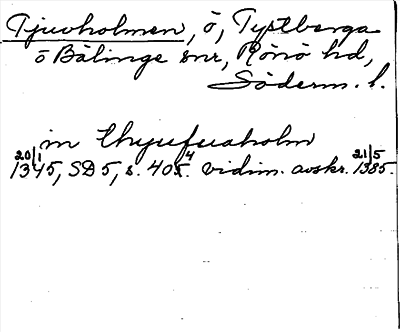 Tjuvholmen, ö, Tystberga
o Bälinge snr, Rönö hd,
Söderm. l.
in thyufuaholm
20/1 1345, SD 5, s. 405. 4 vidim. avskr. 21/5 1385.